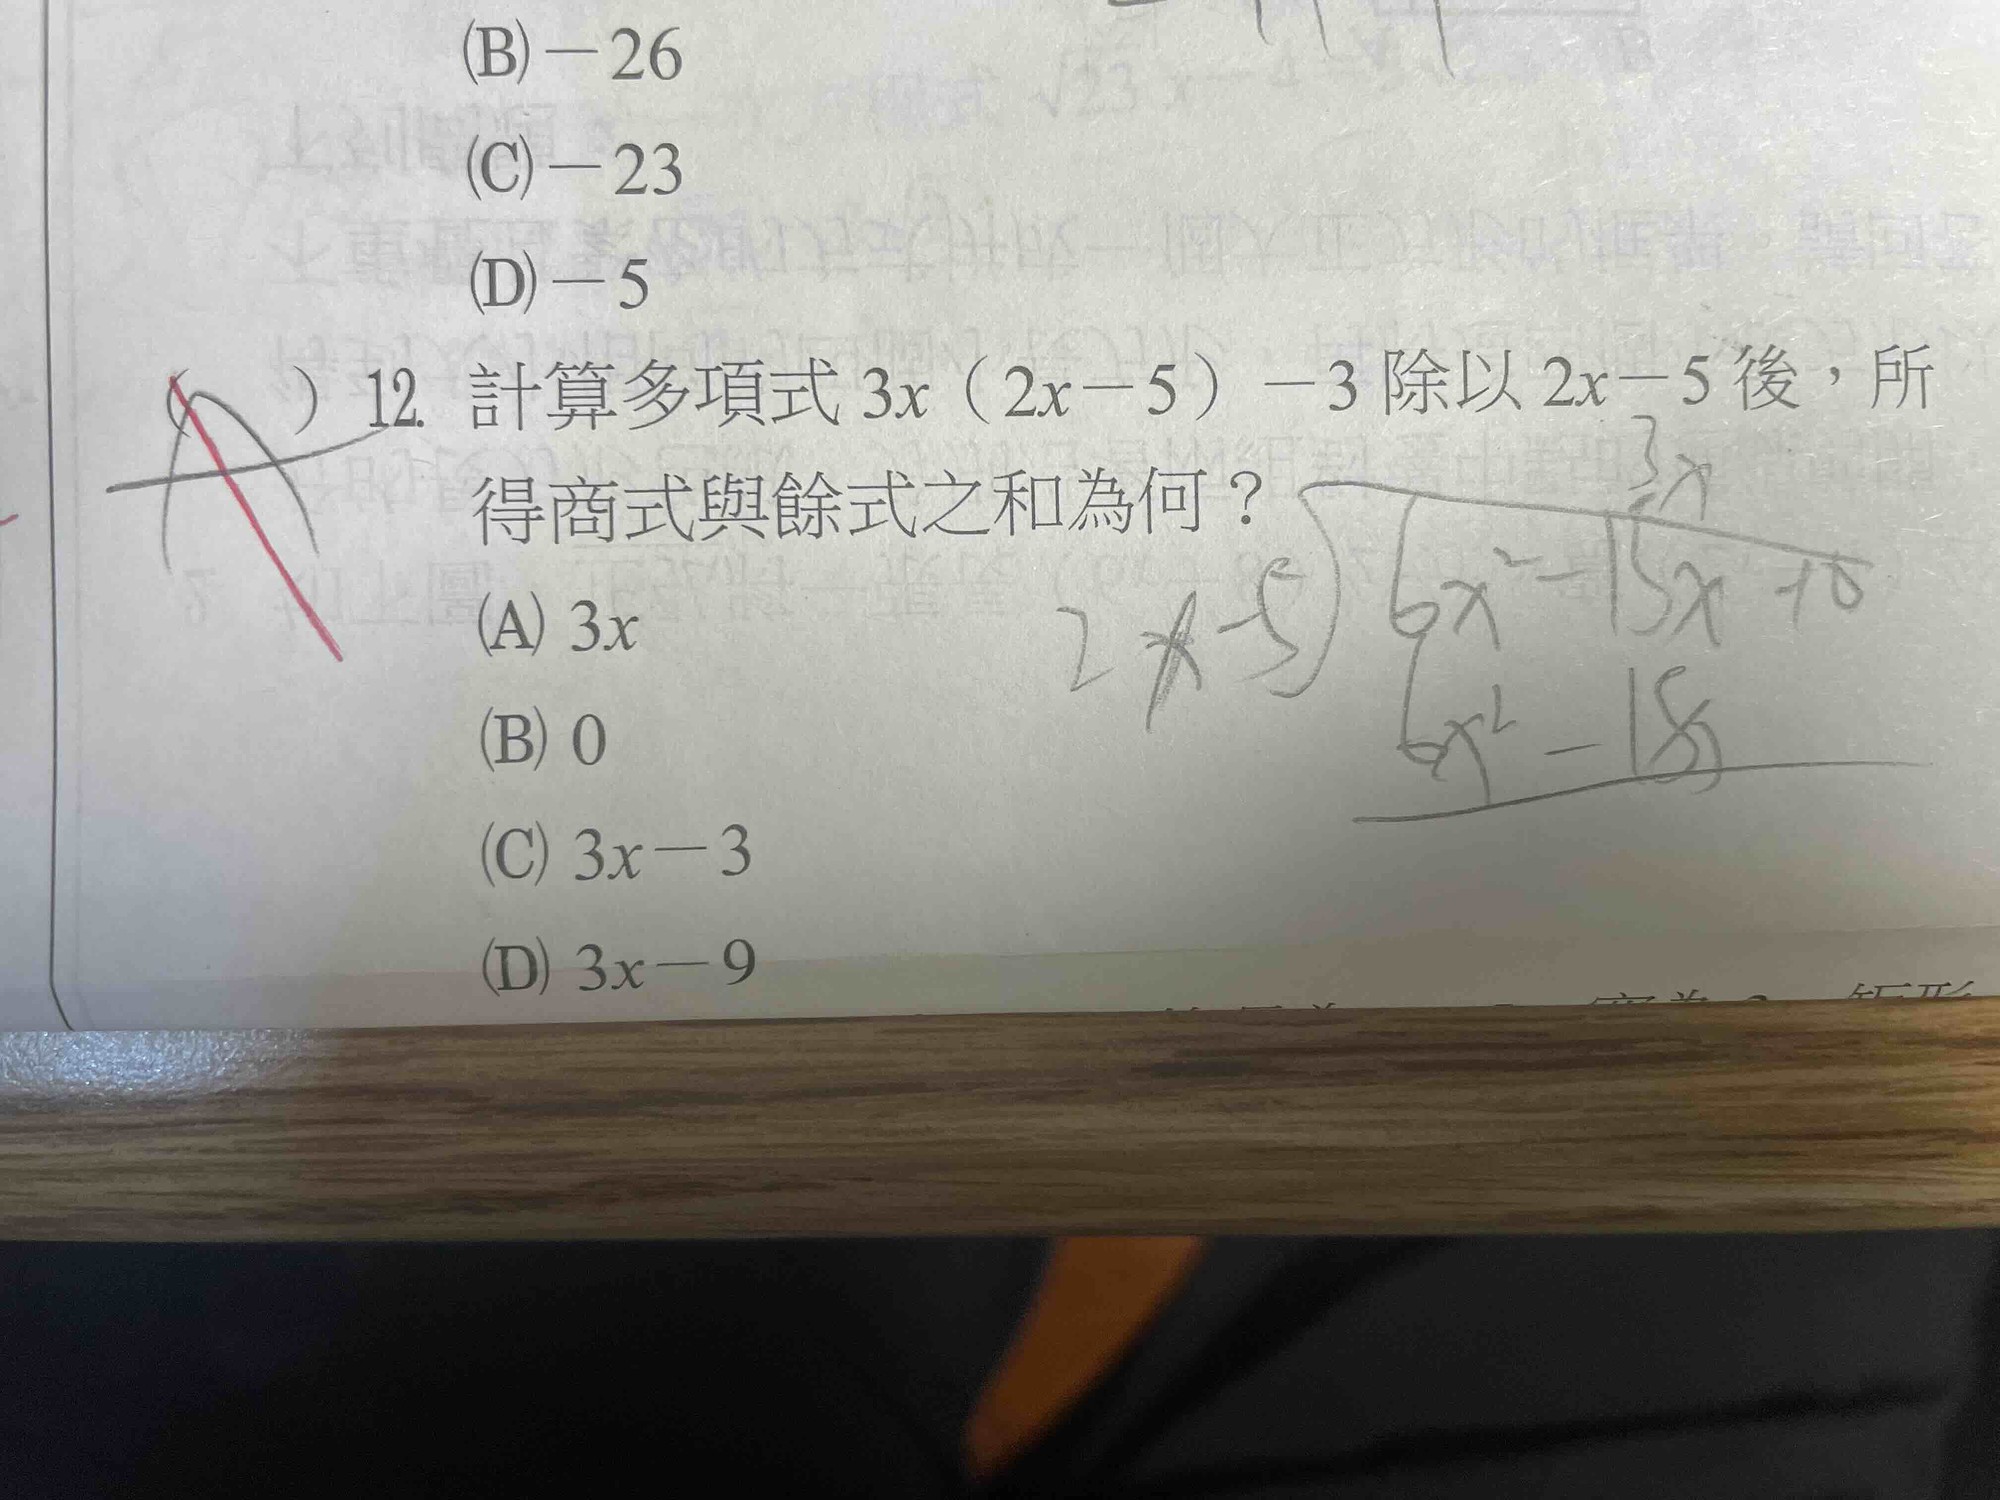 (B)－26
(C)－23
(D)－5
( A ) 12. 計算多項式 3x（2x－5）－3 除以 2x－5 後，所
得商式與餘式之和為何？
(A) 3x
(B) 0
(C) 3x－3
(D) 3x－9
3x
2x-5 6x²-15x+0
6x²-15x